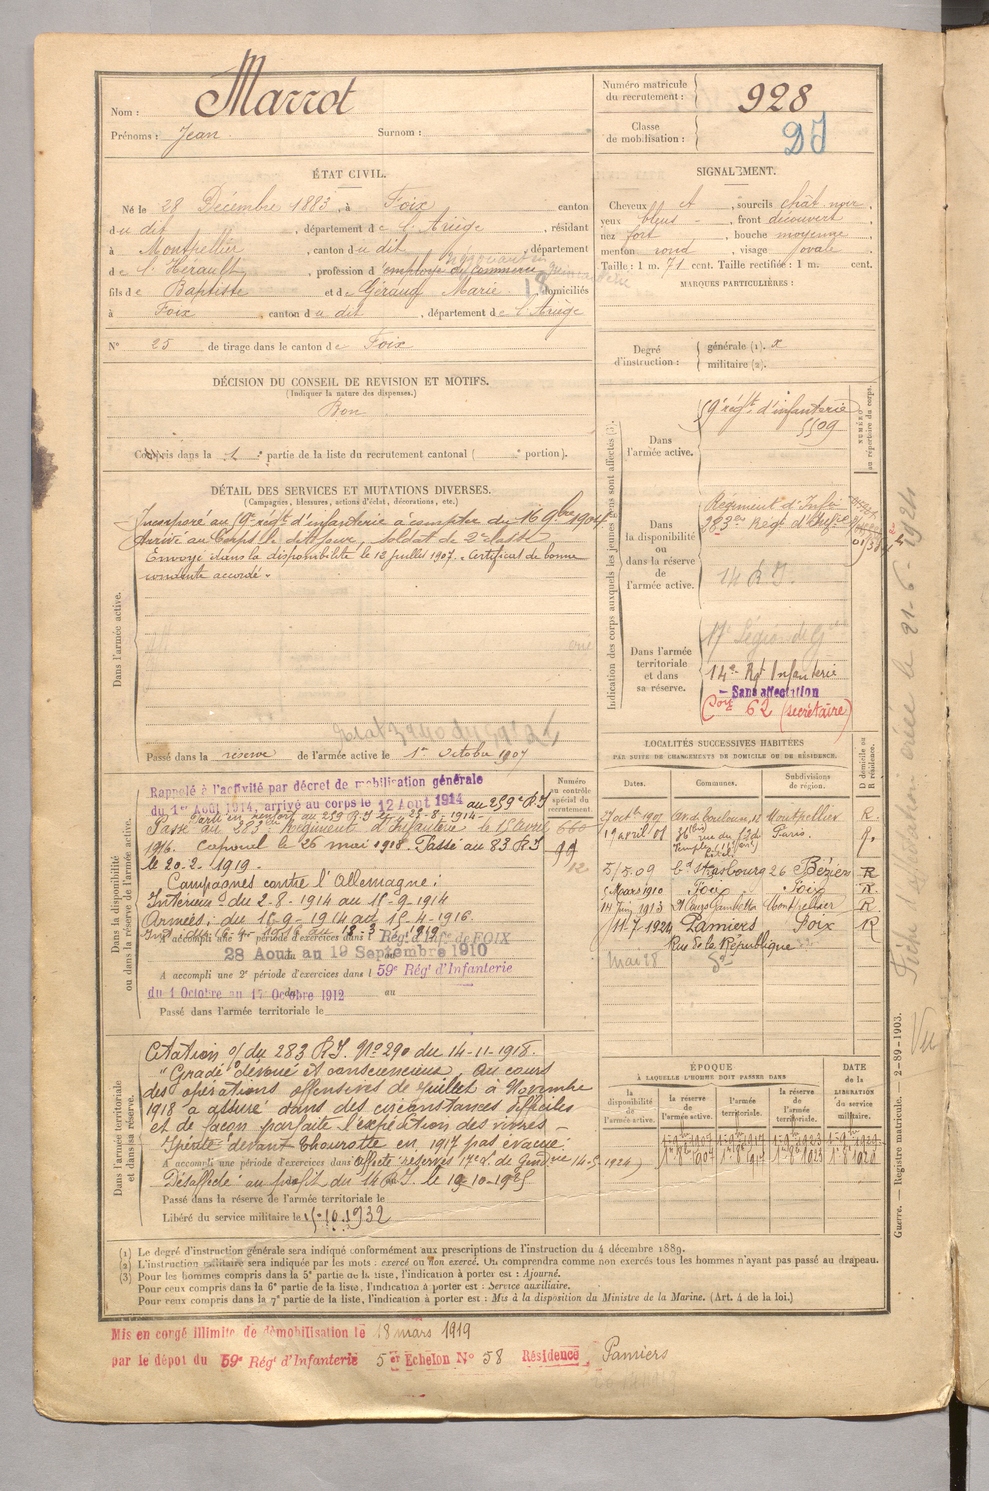 Nom : Marrot
Prénoms : Jean Surnom :
Numéro matricule du recrutement : 928
Classe de mobilisation :
ÉTAT CIVIL.
Né le 28 Décembre 1883, à Foix canton
du dit, département de l'Ariège, résidant
à Montpellier, canton du dit, département
de l'Hérault, profession d'employé de commerce
fils de Baptiste et de Géraud Marie 18 domiciliés
à Foix canton du dit, département de l'Ariège
N° 25 de tirage dans le canton de Foix
SIGNALEMENT.
Cheveux et, sourcils chat. noir,
yeux bleus, front découvert,
nez fort, bouche moyenne,
menton rond, visage ovale.
Taille : 1 m. 71 cent. Taille rectifiée : 1 m. cent.
MARQUES PARTICULIÈRES :
Degré d'instruction : générale (1). x
militaire (2).
DÉCISION DU CONSEIL DE REVISION ET MOTIFS.
(Indiquer la nature des dispenses.)
Bon
Compris dans la 1 e partie de la liste du recrutement cantonal ( e portion).
DÉTAIL DES SERVICES ET MUTATIONS DIVERSES.
(Campagnes, blessures, actions d'éclat, décorations, etc.)
Dans l'armée active.
Incorporé au 59e régt d'infanterie à compter du 16 9bre 1904
Arrivé au Corps le dit jour, soldat de 2e classe
Envoyé dans la disponibilité le 12 juillet 1907. Certificat de bonne
conduite accordé.
Passé dans la réserve de l'armée active le 1er octobre 1907
Indication des corps auxquels les jeunes gens sont affectés (3).
NUMÉRO au répertoire du corps.
Dans l'armée active.
59e régt d'infanterie
5509
Dans la disponibilité ou dans la réserve de l'armée active.
Régiment d'Infie
283e Régt d'Infie
14 R I.
Dans l'armée territoriale et dans sa réserve.
17e Légion de
14e Rgt Infanterie
Sans affectation
62 (secrétaire)
Fiche d'affectation créée le 21-6-1924
Vu
LOCALITÉS SUCCESSIVES HABITÉES
PAR SUITE DE CHANGEMENTS DE DOMICILE OU DE RÉSIDENCE.
Dates. Communes. Subdivisions de région. D domicile ou R résidence.
7 octbre 1907 Montpellier R.
19 avril 08 rue du Fbg Paris. R.
5/5.09 bd Strasbourg 26 Béziers R
5 Mars 1910 Foix Foix R
14 Juin 1913 21 Cours Gambetta Montpellier R
11-7-1924 Pamiers Foix R
Rue de la République
Mai 28
Dans la disponibilité ou dans la réserve de l'armée active.
Numéro au contrôle spécial du recrutement.
660
Rappelé à l'activité par décret de mobilisation générale
du 1er Août 1914, arrivé au corps le 12 Aout 1914 au 259e R I
Parti en renfort au 259 R I le 25-8-1914
Passé au 283e Régiment d'Infanterie le 15 avril
1916. Caporal le 26 mai 1918. Passé au 83 R I
le 20-2-1919.
Campagnes contre l'Allemagne :
Intérieur du 2-8-1914 au 15-9-1914
Armées : du 16-9-1914 au 15-4-1916.
Int. du 16-4-1916 au 18-3-1919
A accompli une 1re période d'exercices dans l Régt d'Infie de FOIX
28 Aout au 19 Septembre 1910
A accompli une 2e période d'exercices dans l 59e Régt d'Infanterie
du 1 Octobre au 17 Octobre 1912 au
Passé dans l'armée territoriale le
Dans l'armée territoriale et dans sa réserve.
Citation o/ du 283 R.I. N° 290 du 14-11-1918.
"Gradé dévoué et consciencieux, Au cours
des opérations offensives de Juillet à Novembre
1918 a assuré dans des circonstances difficiles
et de façon parfaite l'expédition des vivres –
Ypérité devant Thourotte en 1917 pas évacué.
A accompli une période d'exercices dans Affecté réserves 17e L de Gendie 14-5-1924
Désaffecté au profit du 14 R.I. le 19-10-1925
Passé dans la réserve de l'armée territoriale le
Libéré du service militaire le 15.10.1932
ÉPOQUE
À LAQUELLE L'HOMME DOIT PASSER DANS
la disponibilité de l'armée active. la réserve de l'armée active. l'armée territoriale. la réserve de l'armée territoriale. DATE de la LIBÉRATION du service militaire.
Guerre. — Registre matricule. 2-89-1903.
(1) Le degré d'instruction générale sera indiqué conformément aux prescriptions de l'instruction du 4 décembre 1889.
(2) L'instruction militaire sera indiquée par les mots : exercé ou non exercé. On comprendra comme non exercés tous les hommes n'ayant pas passé au drapeau.
(3) Pour les hommes compris dans la 5e partie de la liste, l'indication à porter est : Ajourné.
Pour ceux compris dans la 6e partie de la liste, l'indication à porter est : Service auxiliaire.
Pour ceux compris dans la 7e partie de la liste, l'indication à porter est : Mis à la disposition du Ministre de la Marine. (Art. 4 de la loi.)
Mis en congé illimité de démobilisation le 18 mars 1919
par le dépôt du 59e Régt d'Infanterie 5 er Echelon N° 58 Résidence Pamiers